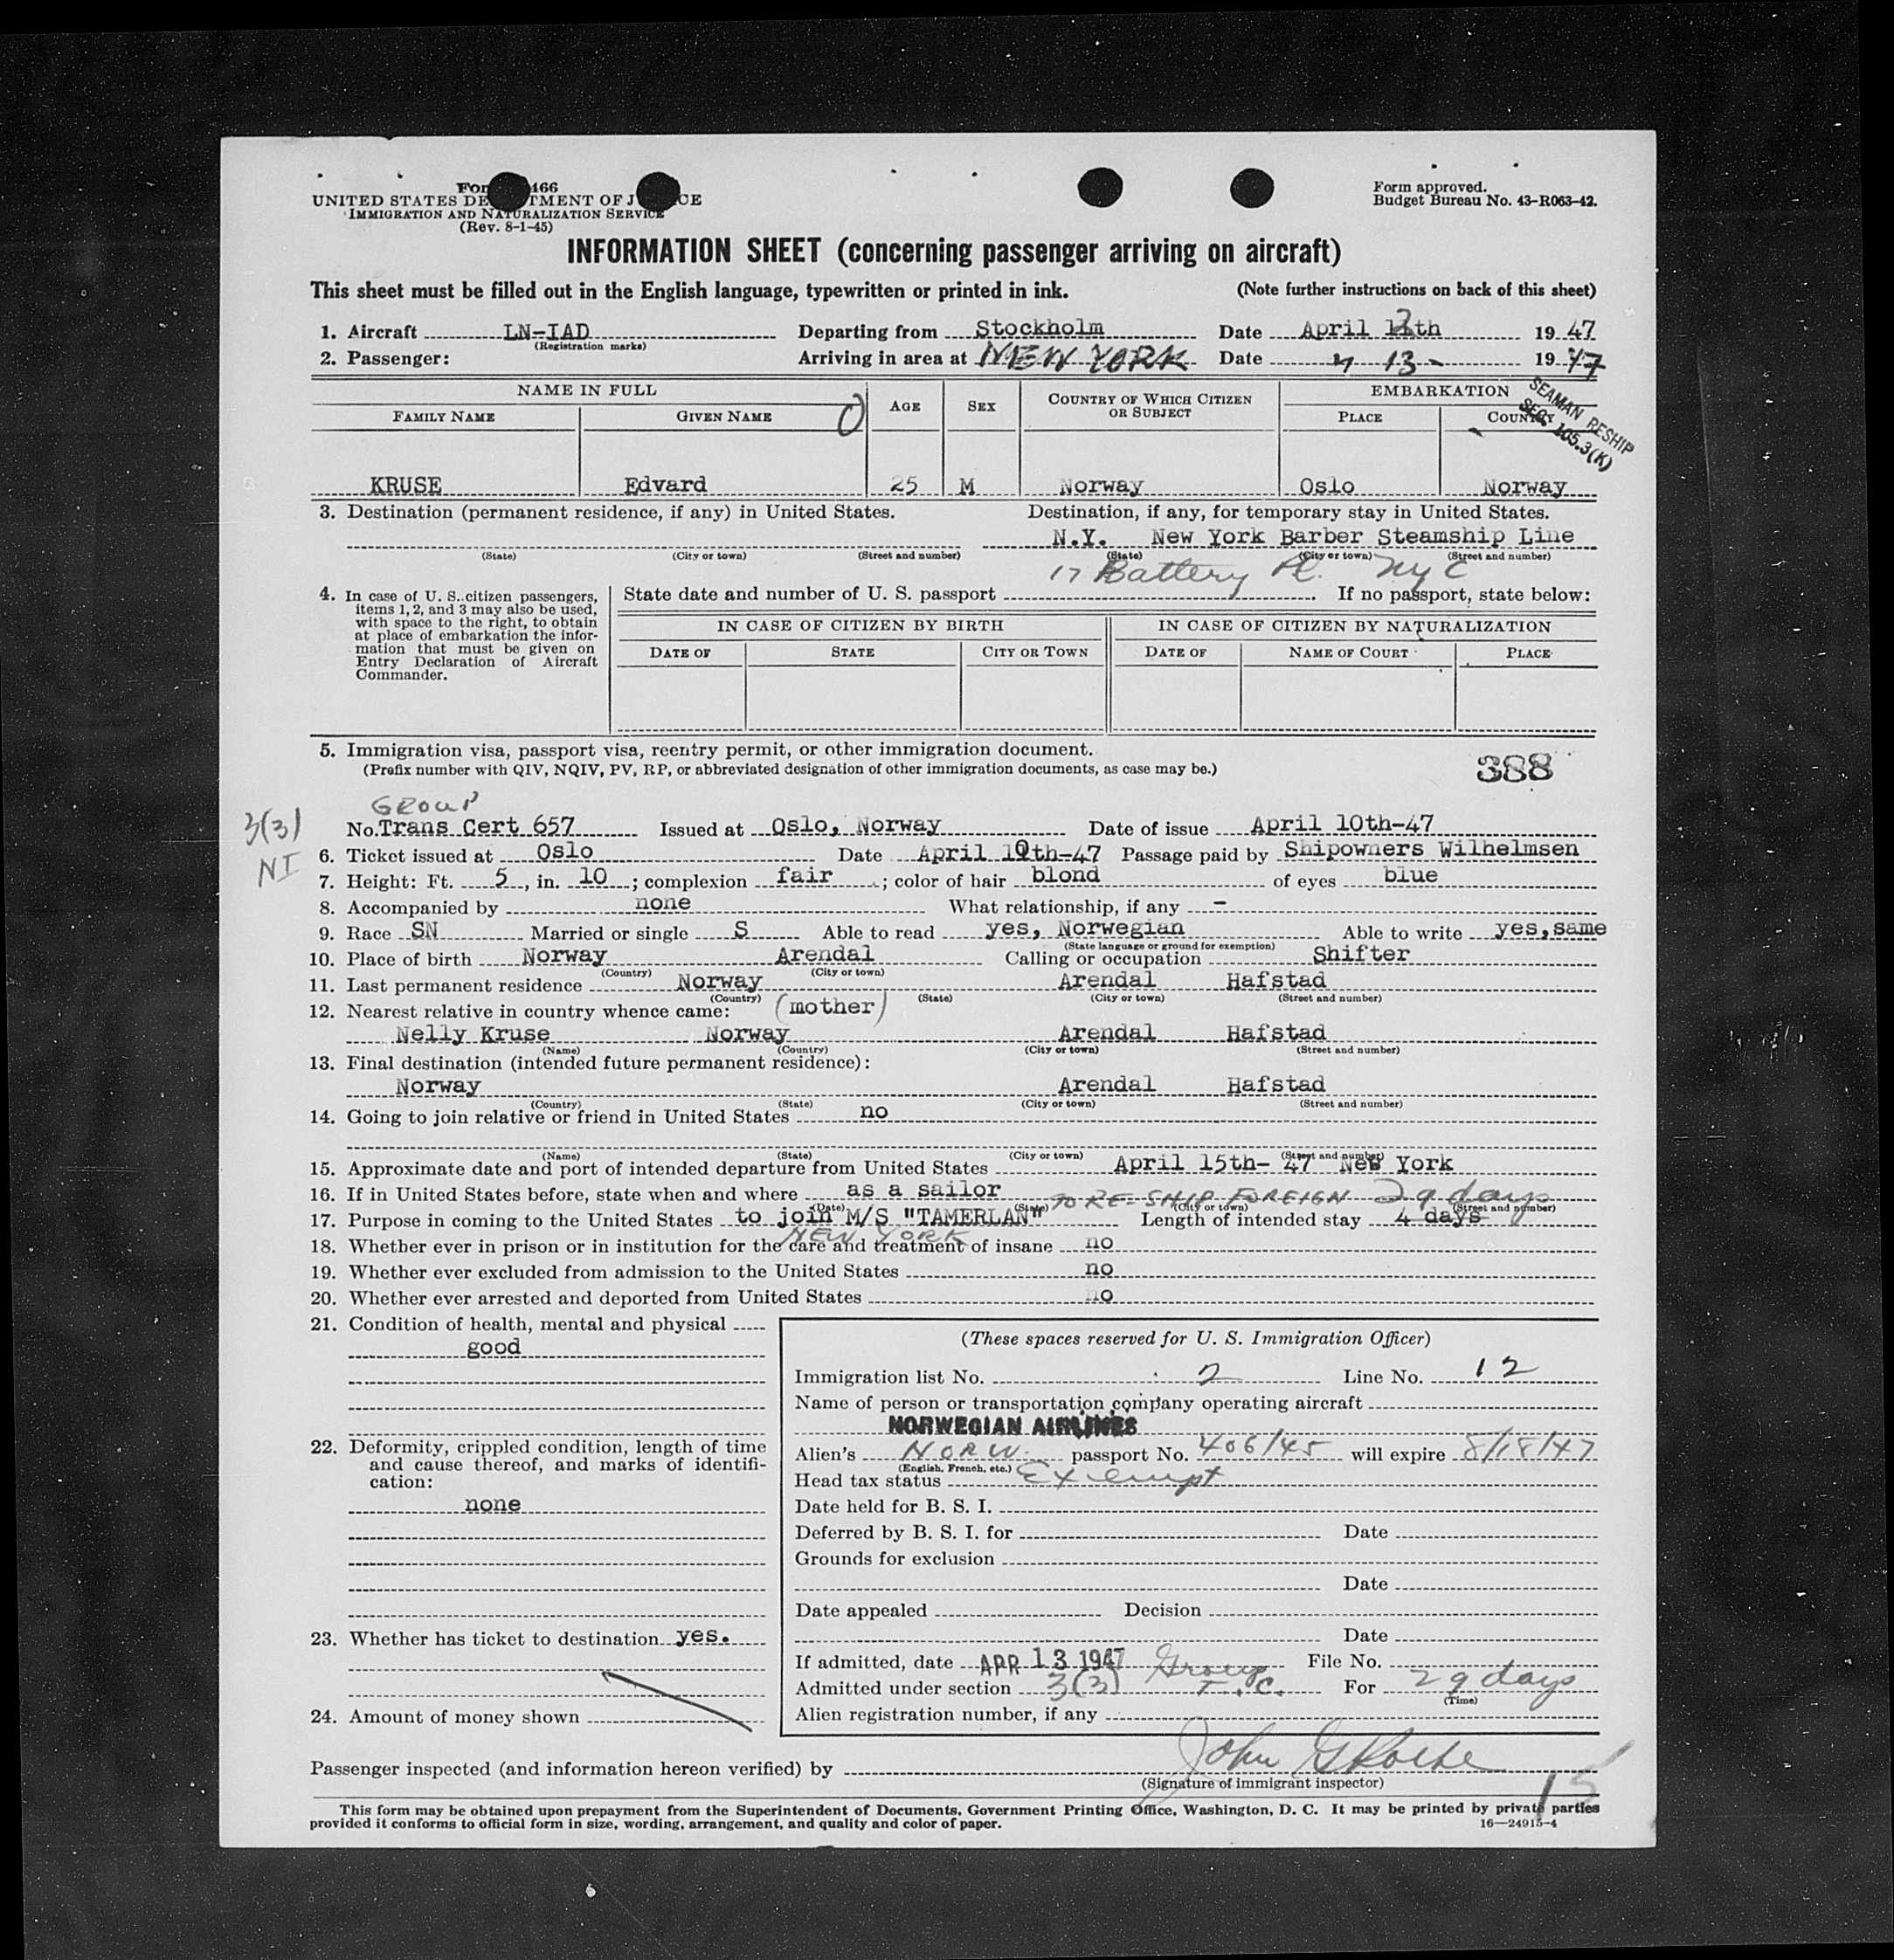 Form 466
UNITED STATES DEPARTMENT OF JUSTICE
IMMIGRATION AND NATURALIZATION SERVICE
(Rev. 8-1-45)
Form approved.
Budget Bureau No. 43-R063-42.
INFORMATION SHEET (concerning passenger arriving on aircraft)
This sheet must be filled out in the English language, typewritten or printed in ink. (Note further instructions on back of this sheet)
1. Aircraft LN-IAD Departing from Stockholm Date April 12th 1947
(Registration marks)
2. Passenger: Arriving in area at NEW YORK Date " 13- 1947
NAME IN FULL EMBARKATION
FAMILY NAME GIVEN NAME AGE SEX COUNTRY OF WHICH CITIZEN OR SUBJECT PLACE COUNTRY
SEAMAN RESHIP
SEC. 105.3(K)
KRUSE Edvard 25 M Norway Oslo Norway
3. Destination (permanent residence, if any) in United States. Destination, if any, for temporary stay in United States.
N.Y. New York Barber Steamship Line
(State) (City or town) (Street and number) (State) (City or town) (Street and number)
17 Battery Pl. NYC
4. In case of U. S. citizen passengers, items 1, 2, and 3 may also be used, with space to the right, to obtain at place of embarkation the information that must be given on Entry Declaration of Aircraft Commander.
State date and number of U. S. passport . If no passport, state below:
IN CASE OF CITIZEN BY BIRTH IN CASE OF CITIZEN BY NATURALIZATION
DATE OF STATE CITY OR TOWN DATE OF NAME OF COURT PLACE
5. Immigration visa, passport visa, reentry permit, or other immigration document.
(Prefix number with QIV, NQIV, PV, RP, or abbreviated designation of other immigration documents, as case may be.)
388
GROUP
3(3)
NI
No. Trans Cert 657 Issued at Oslo, Norway Date of issue April 10th-47
6. Ticket issued at Oslo Date April 10th-47 Passage paid by Shipowners Wilhelmsen
7. Height: Ft. 5, in. 10; complexion fair; color of hair blond of eyes blue
8. Accompanied by none What relationship, if any -
9. Race SN Married or single S Able to read yes, Norwegian Able to write yes,same
(State language or ground for exemption)
10. Place of birth Norway Arendal Calling or occupation Shifter
(Country) (City or town)
11. Last permanent residence Norway Arendal Hafstad
(Country) (State) (City or town) (Street and number)
12. Nearest relative in country whence came: (mother)
Nelly Kruse Norway Arendal Hafstad
(Name) (Country) (City or town) (Street and number)
13. Final destination (intended future permanent residence):
Norway Arendal Hafstad
(Country) (State) (City or town) (Street and number)
14. Going to join relative or friend in United States no
(Name) (State) (City or town) (Street and number)
15. Approximate date and port of intended departure from United States April 15th- 47 New York
16. If in United States before, state when and where as a sailor
(Date) (State) (City or town) (Street and number)
TO RE-SHIP FOREIGN 29 days
17. Purpose in coming to the United States to join M/S "TAMERLAN" Length of intended stay 4 days
NEW YORK
18. Whether ever in prison or in institution for the care and treatment of insane no
19. Whether ever excluded from admission to the United States no
20. Whether ever arrested and deported from United States no
21. Condition of health, mental and physical
good
22. Deformity, crippled condition, length of time and cause thereof, and marks of identification:
none
23. Whether has ticket to destination yes.
24. Amount of money shown
(These spaces reserved for U. S. Immigration Officer)
Immigration list No. 2 Line No. 12
Name of person or transportation company operating aircraft
NORWEGIAN AIRLINES
Alien's NORW. passport No. 406/45 will expire 8/18/47
(English, French, etc.)
Head tax status Exempt
Date held for B. S. I.
Deferred by B. S. I. for Date
Grounds for exclusion
Date
Date appealed Decision
Date
If admitted, date APR 13 1947 Group File No.
Admitted under section 3(3) T.C. For 29 days
(Time)
Alien registration number, if any
Passenger inspected (and information hereon verified) by John G
(Signature of immigrant inspector)
15
This form may be obtained upon prepayment from the Superintendent of Documents, Government Printing Office, Washington, D. C. It may be printed by private parties
provided it conforms to official form in size, wording, arrangement, and quality and color of paper. 16—24915-4